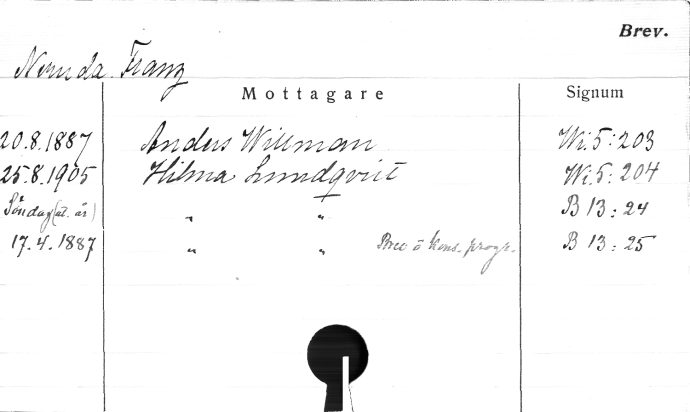 Brev.
Neruda Franz
Mottagare Signum
20.8.1887 Anders Willman Wi.5:203
25.8.1905 Hilma Lundqvist Wi.5:204
Söndag (ut. år) " " B 13:24
17.4.1887 " " Brev o kons. progr. B 13:25